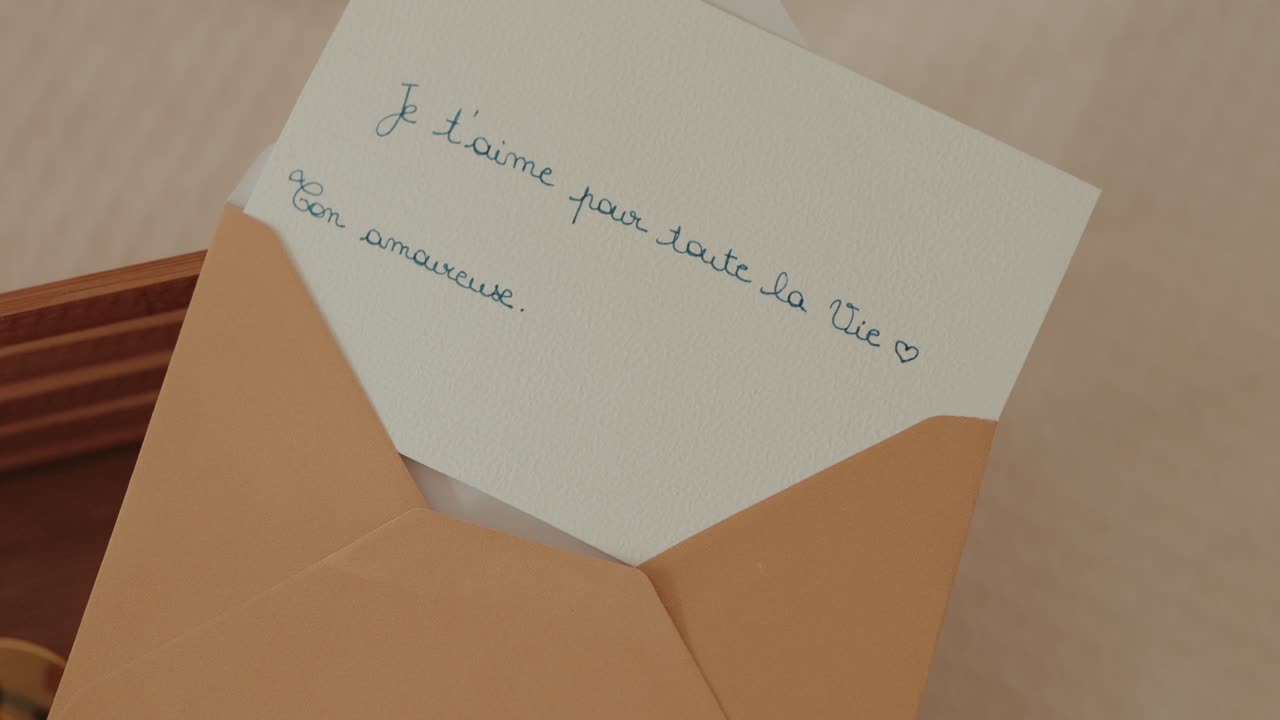 Je t'aime pour toute la Vie ♡
Ton amoureuse.